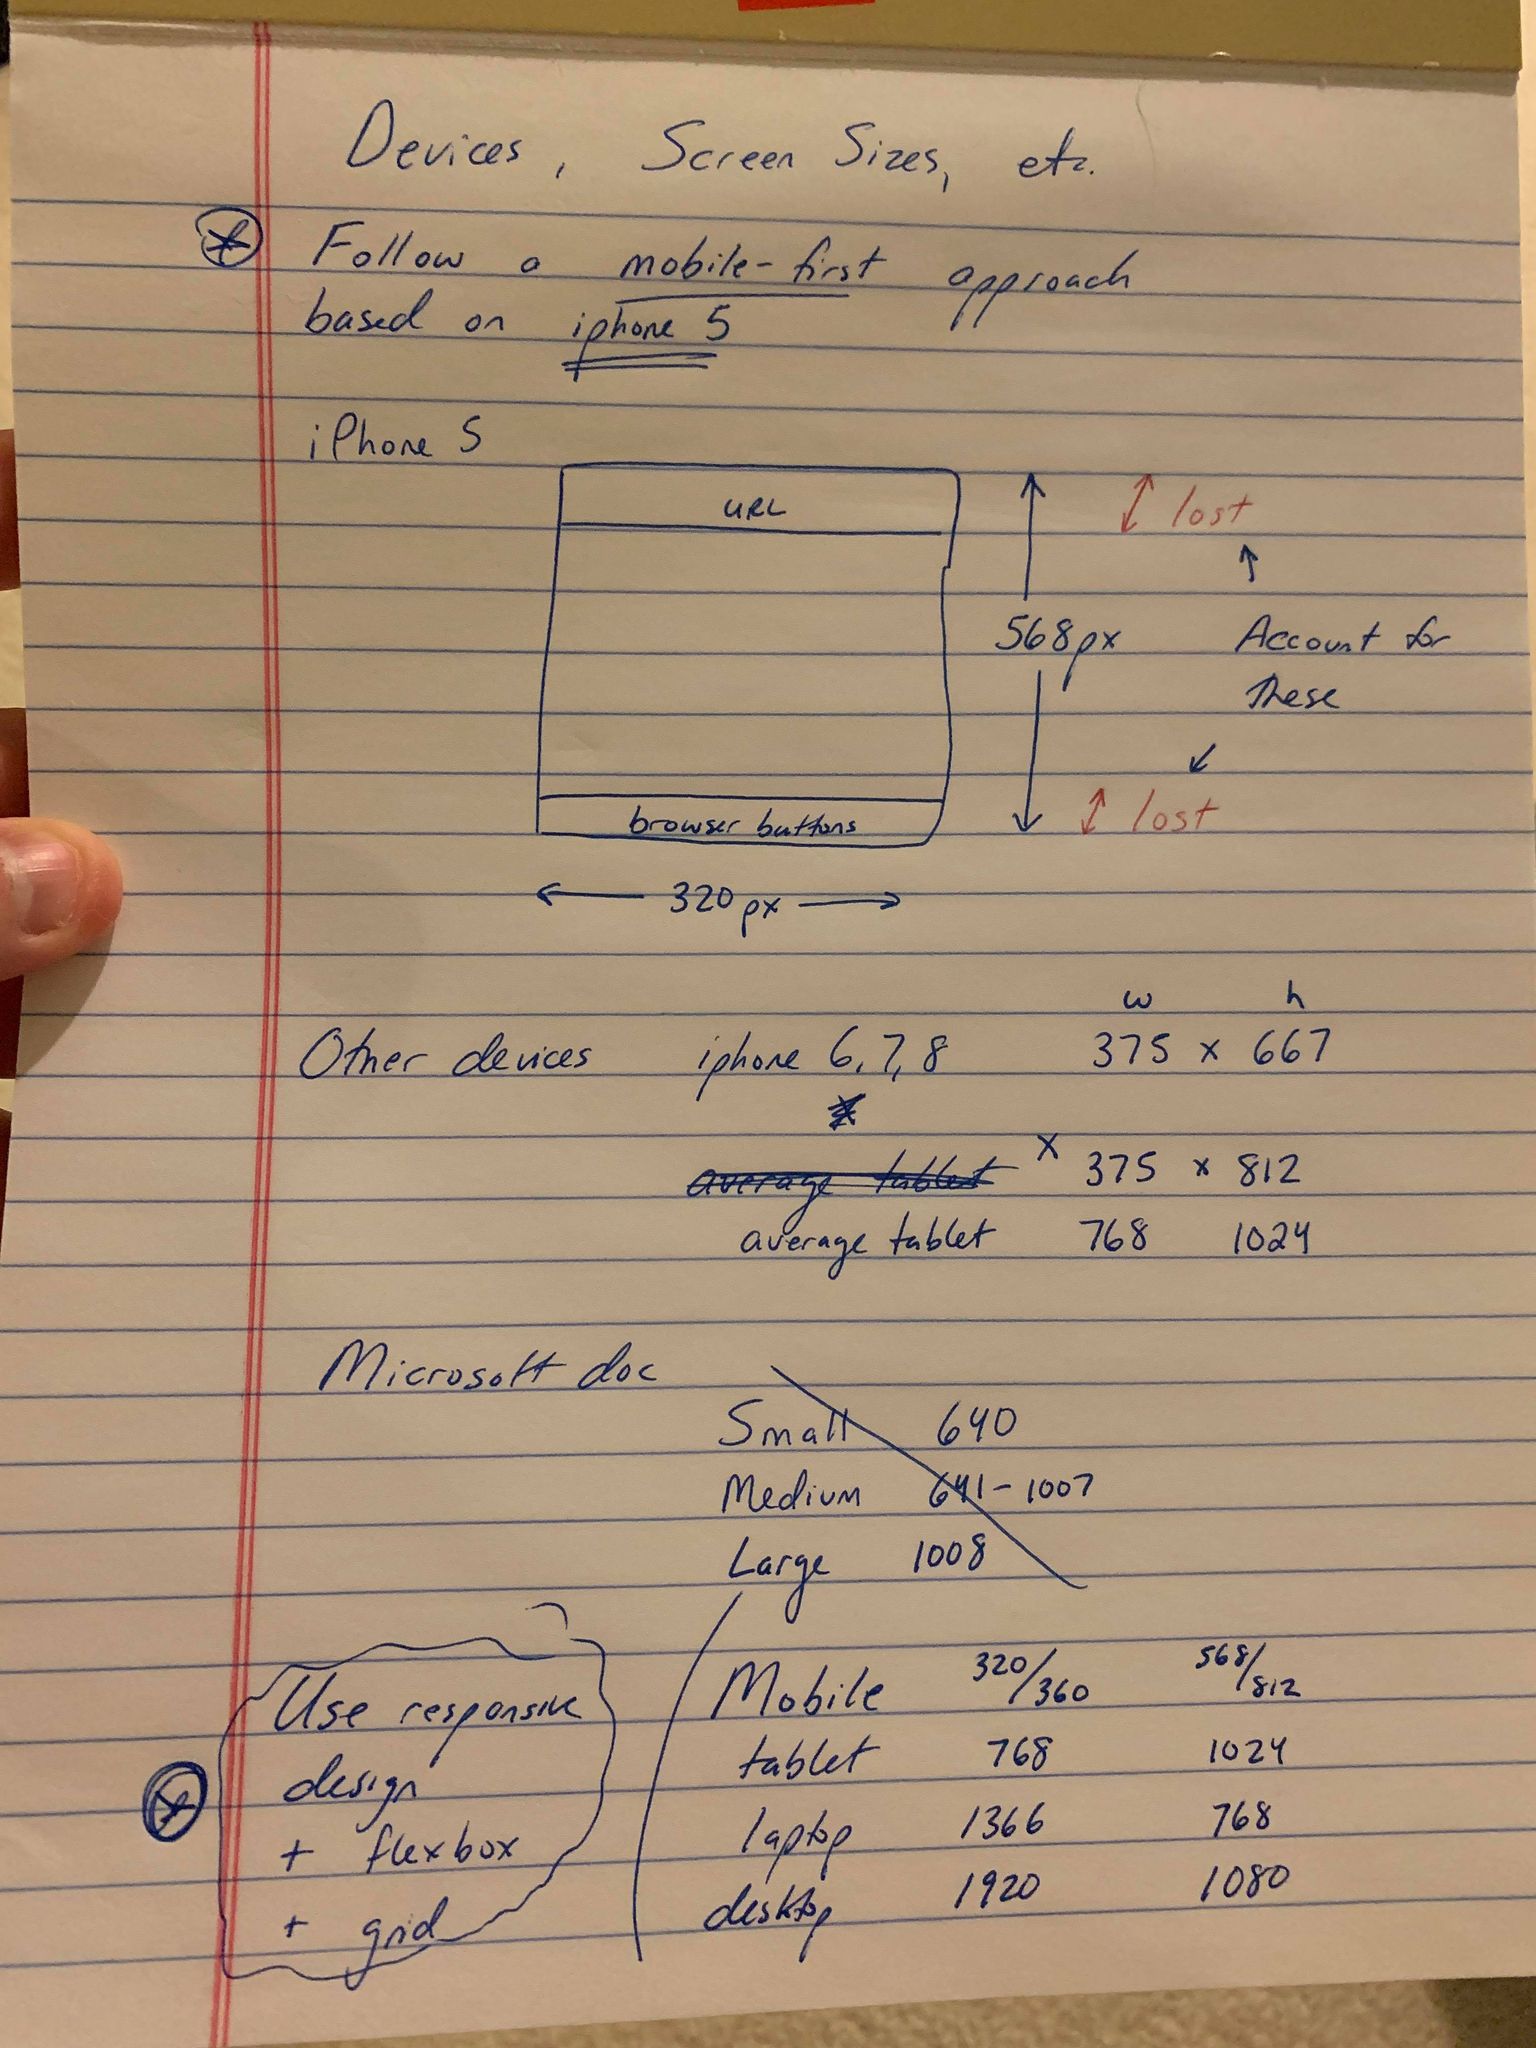 Devices, Screen Sizes, etc.
Follow a mobile-first approach
based on iphone 5
iPhone 5
URL
lost
568px
Account for
these
lost
browser buttons
320px
w h
Other devices iphone 6,7,8 375 x 667
average tablet X 375 x 812
average tablet 768 1024
Microsoft doc
Small 640
Medium 641-1007
Large 1008
Use responsive
design
+ flexbox
+ grid
Mobile 320/360 568/812
tablet 768 1024
laptop 1366 768
desktop 1920 1080